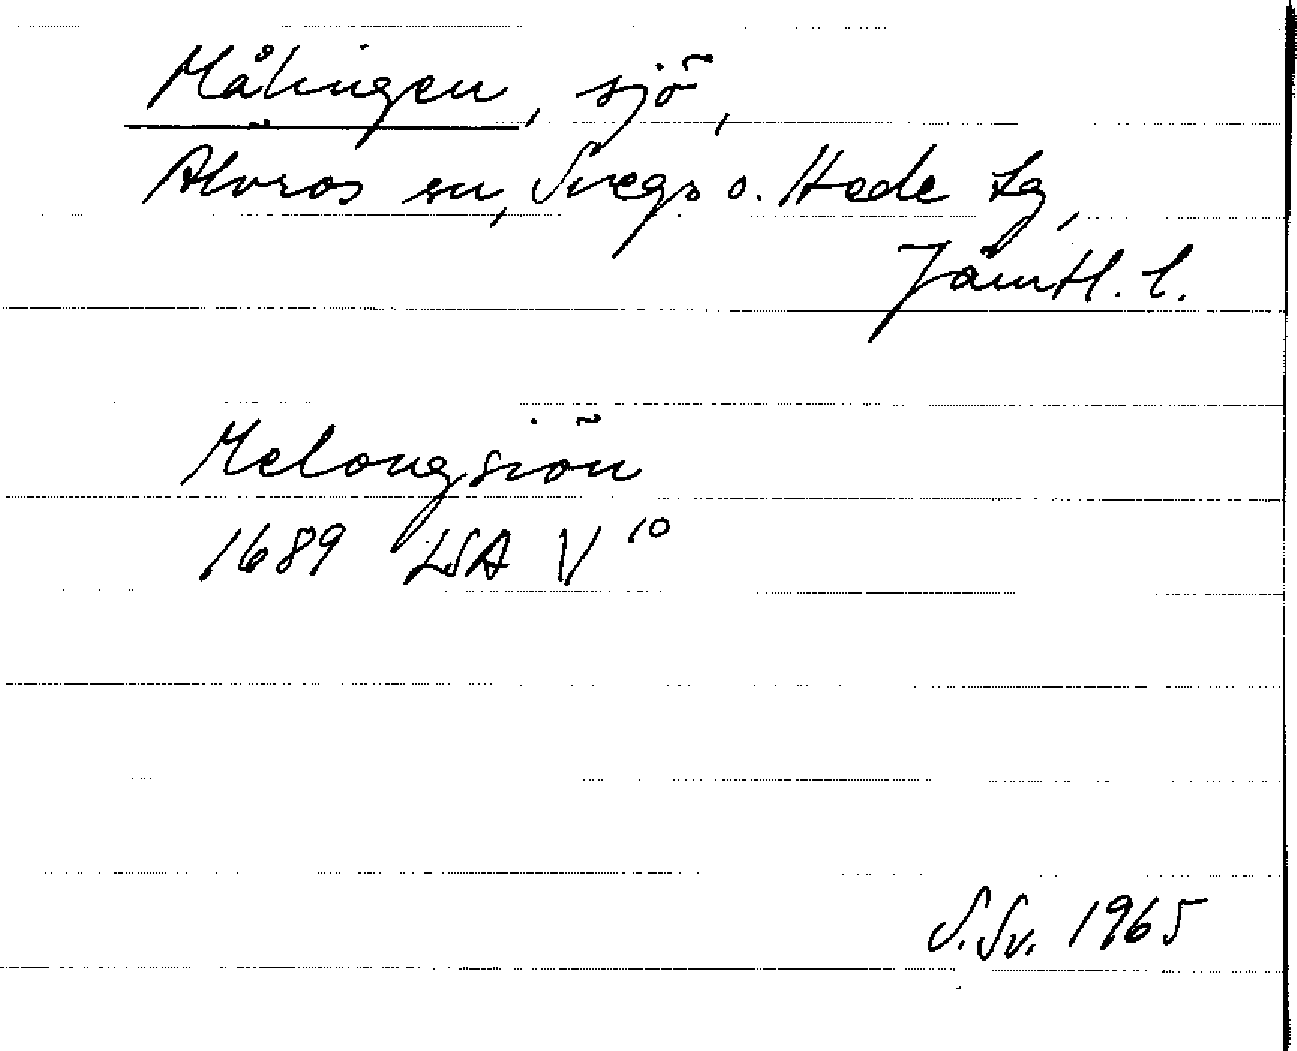 Målingen, sjö,
Älvros sn, Svegs o. Hede tg,
Jämtl. l.
Melongsiön
1689 LSA V 10
S.Sv. 1965